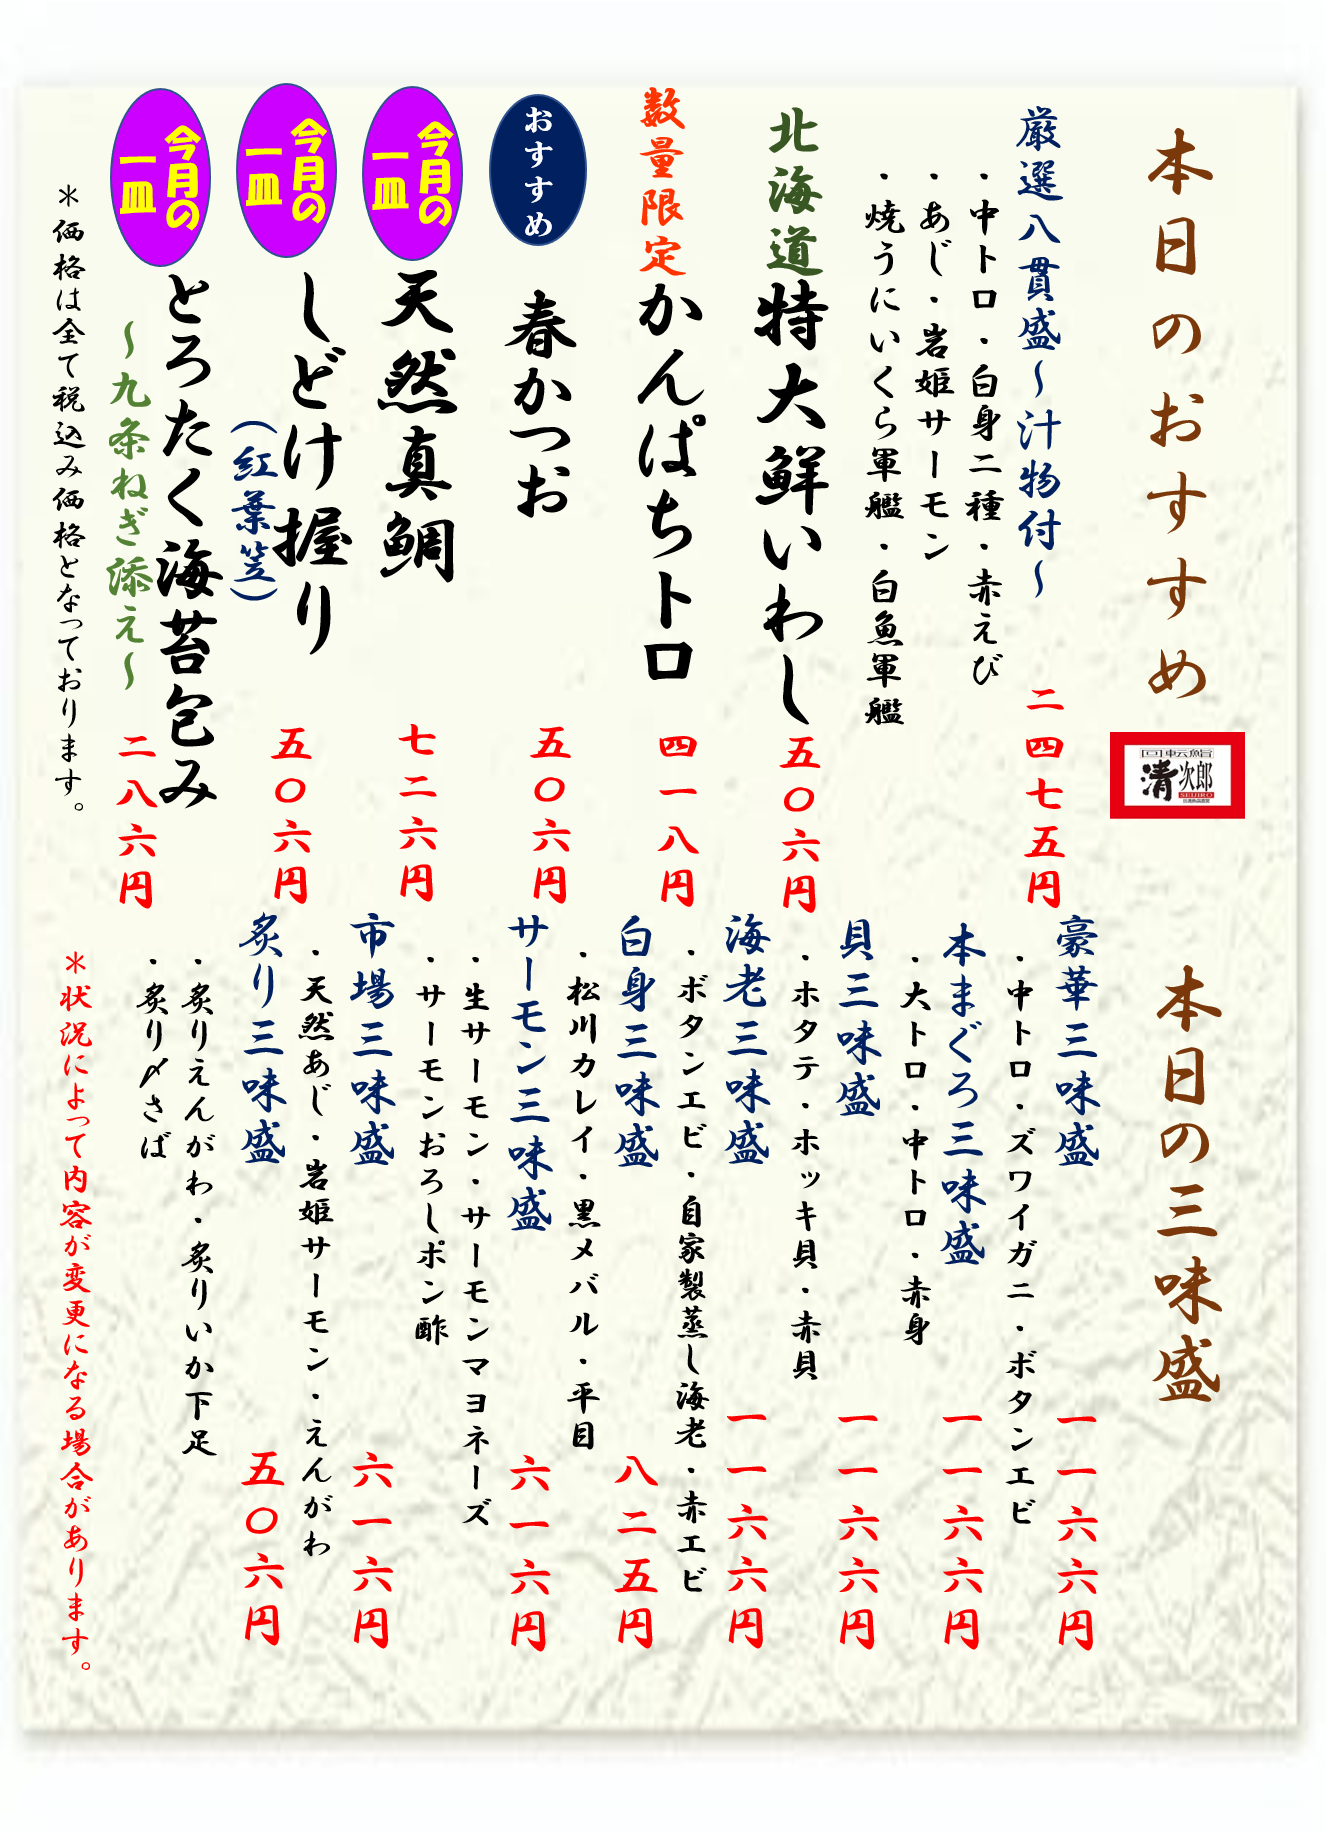 本日のおすすめ
回転鮨
清次郎
SEIJIRO
厳選八貫盛～汁物付～
二四七五円
・中トロ・白身二種・赤えび
・あじ・岩姫サーモン
・焼うにいくら軍艦・白魚軍艦
北海道特大鮮いわし
五〇六円
数量限定かんぱちトロ
四一八円
おすすめ
春かつお
五〇六円
今月の
一皿
天然真鯛
七二六円
今月の
一皿
しどけ握り
(紅葉笠)
五〇六円
今月の
一皿
とろたく海苔包み
～九条ねぎ添え～
二八六円
＊価格は全て税込み価格となっております。
本日の三味盛
豪華三味盛
一一六六円
・中トロ・ズワイガニ・ボタンエビ
本まぐろ三味盛
一一六六円
・大トロ・中トロ・赤身
貝三味盛
一一六六円
・ホタテ・ホッキ貝・赤貝
海老三味盛
一一六六円
・ボタンエビ・自家製蒸し海老・赤エビ
白身三味盛
八二五円
・松川カレイ・黒メバル・平目
サーモン三味盛
六一六円
・生サーモン・サーモンマヨネーズ
・サーモンおろしポン酢
市場三味盛
六一六円
・天然あじ・岩姫サーモン・えんがわ
炙り三味盛
五〇六円
・炙りえんがわ・炙りいか下足
・炙り〆さば
＊状況によって内容が変更になる場合があります。